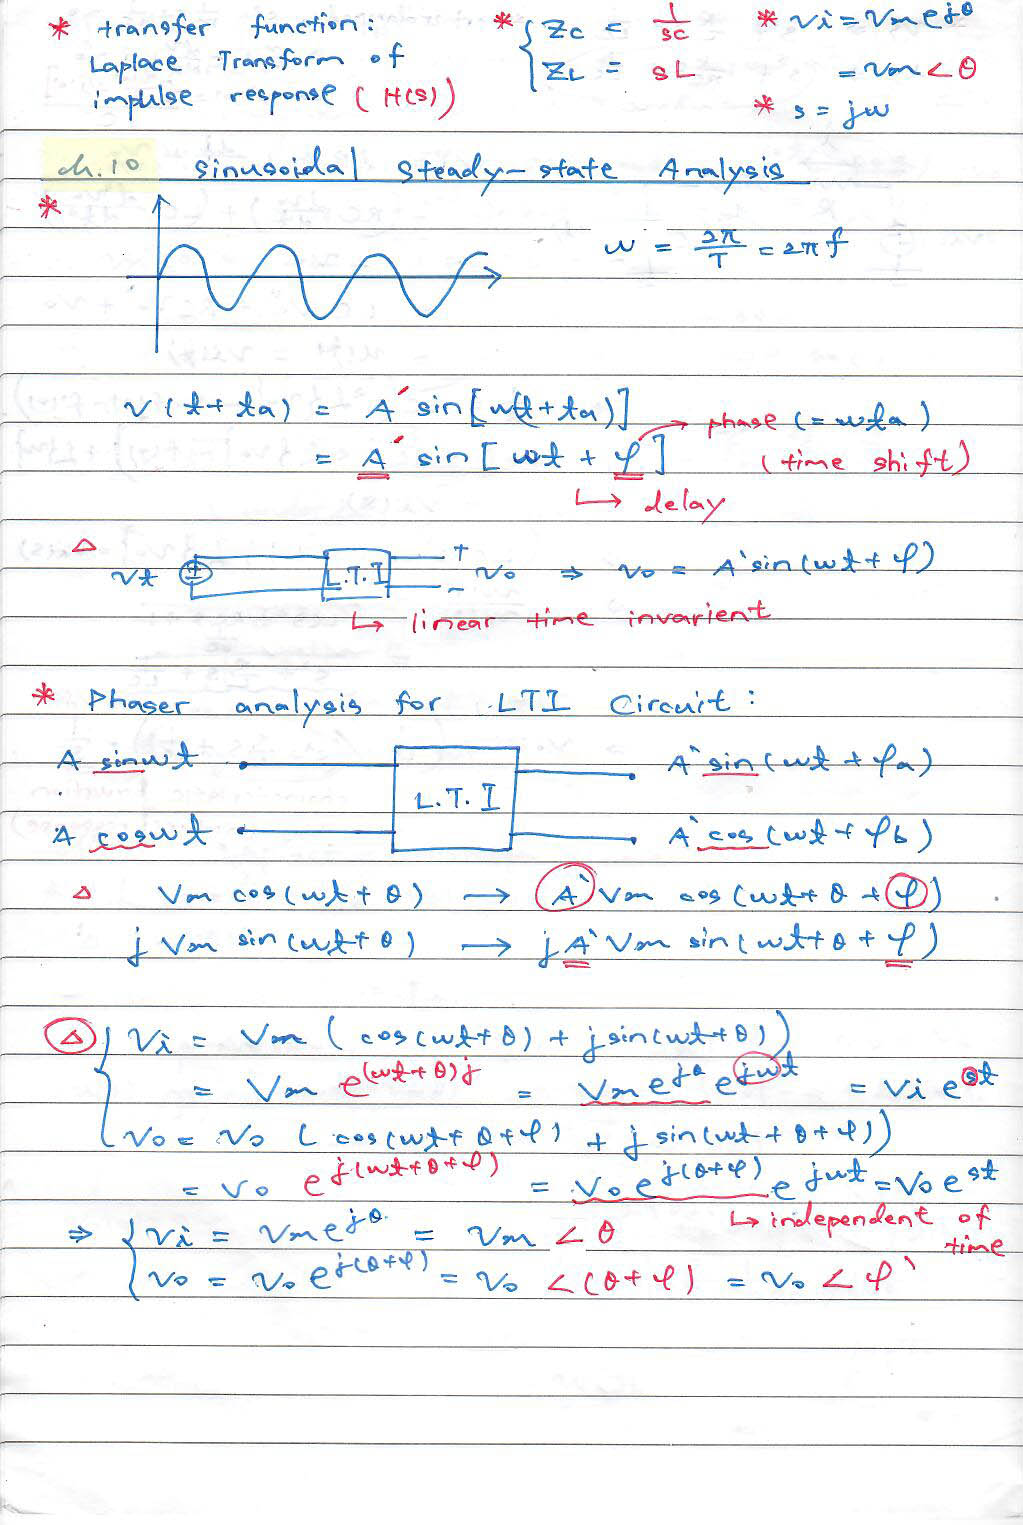 * transfer function :
Laplace Transform of
impulse response ( H(s) )
* { Zc = 1/sc
ZL = sL
* Vi = Vm e^jθ
= Vm ∠ θ
* s = jw
ch.10 sinusoidal steady-state Analysis
*
w = 2π/T = 2πf
v(t+ta) = A' sin[w(t+ta)]
= A' sin[wt + φ] → phase (= wta)
(time shift)
↳ delay
△
Vt + - L.T.I + - Vo ⇒ Vo = A' sin(wt + φ)
↳ linear time invarient
* Phaser analysis for LTI Circuit :
A sinwt L.T.I A' sin(wt + φa)
A coswt A' cos(wt + φb)
△ Vm cos(wt + θ) → A' Vm cos(wt + θ + φ)
j Vm sin(wt + θ) → j A' Vm sin(wt + θ + φ)
△ { Vi = Vm ( cos(wt+θ) + j sin(wt+θ))
= Vm e^(wt+θ)j = Vm e^jθ e^jwt = Vi e^st
Vo = Vo ( cos(wt + θ + φ) + j sin(wt + θ + φ))
= Vo e^j(wt+θ+φ) = Vo e^j(θ+φ) e^jwt = Vo e^st
↳ independent of time
⇒ { Vi = Vm e^jθ = Vm ∠ θ
Vo = Vo e^j(θ+φ) = Vo ∠(θ + φ) = Vo ∠ φ'